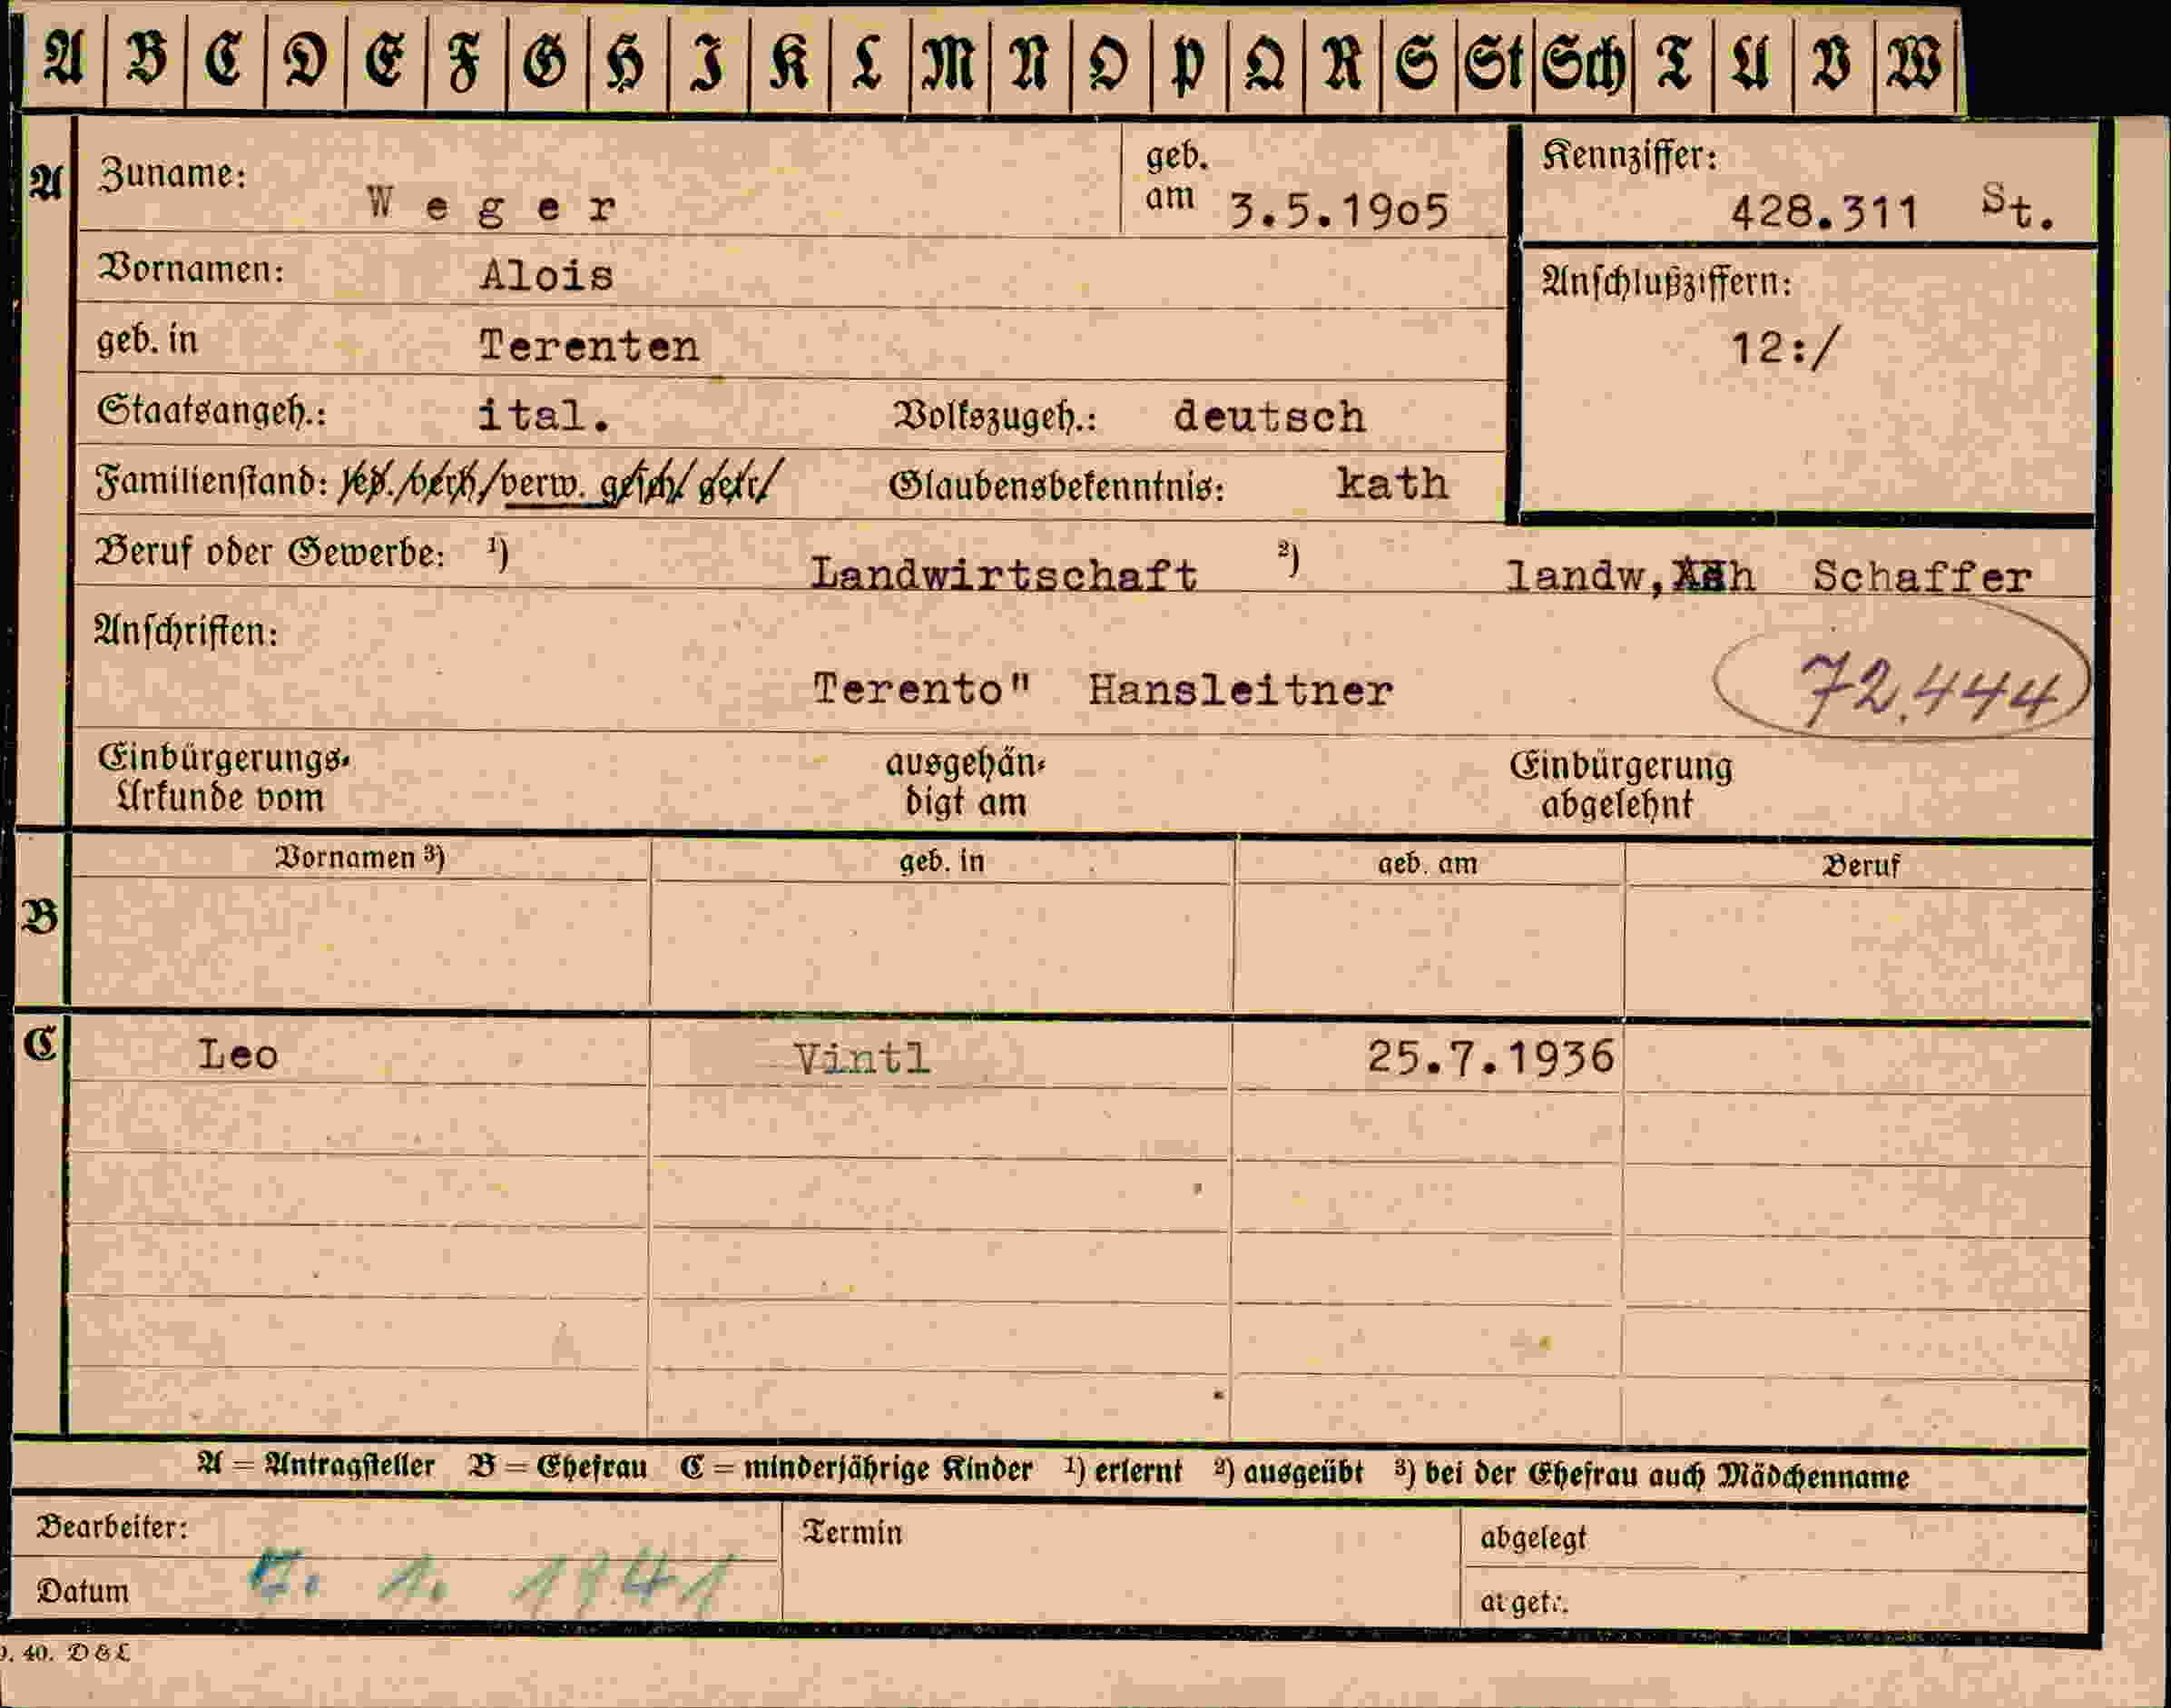 A B C D E F G H I K L M N O P Q R S St Sch T U V W
A Zuname: Weger geb. am 3.5.1905 Kennziffer: 428.311 St.
Vornamen: Alois Anschlußziffern:
geb. in Terenten 12:/
Staatsangeh.: ital. Volkszugeh.: deutsch
Familienstand: led./verh./verw. gesch/ getr/ Glaubensbekenntnis: kath
Beruf oder Gewerbe: ¹) Landwirtschaft ²) landw, h Schaffer
Anschriften:
Terento" Hansleitner 72.444
Einbürgerungs- ausgehän- Einbürgerung
Urkunde vom digt am abgelehnt
B Vornamen ³) geb. in geb. am Beruf
C Leo Vintl 25.7.1936
A = Antragsteller B = Ehefrau C = minderjährige Kinder ¹) erlernt ²) ausgeübt ³) bei der Ehefrau auch Mädchenname
Bearbeiter: Termin abgelegt
Datum 1. 1941
40. D & L